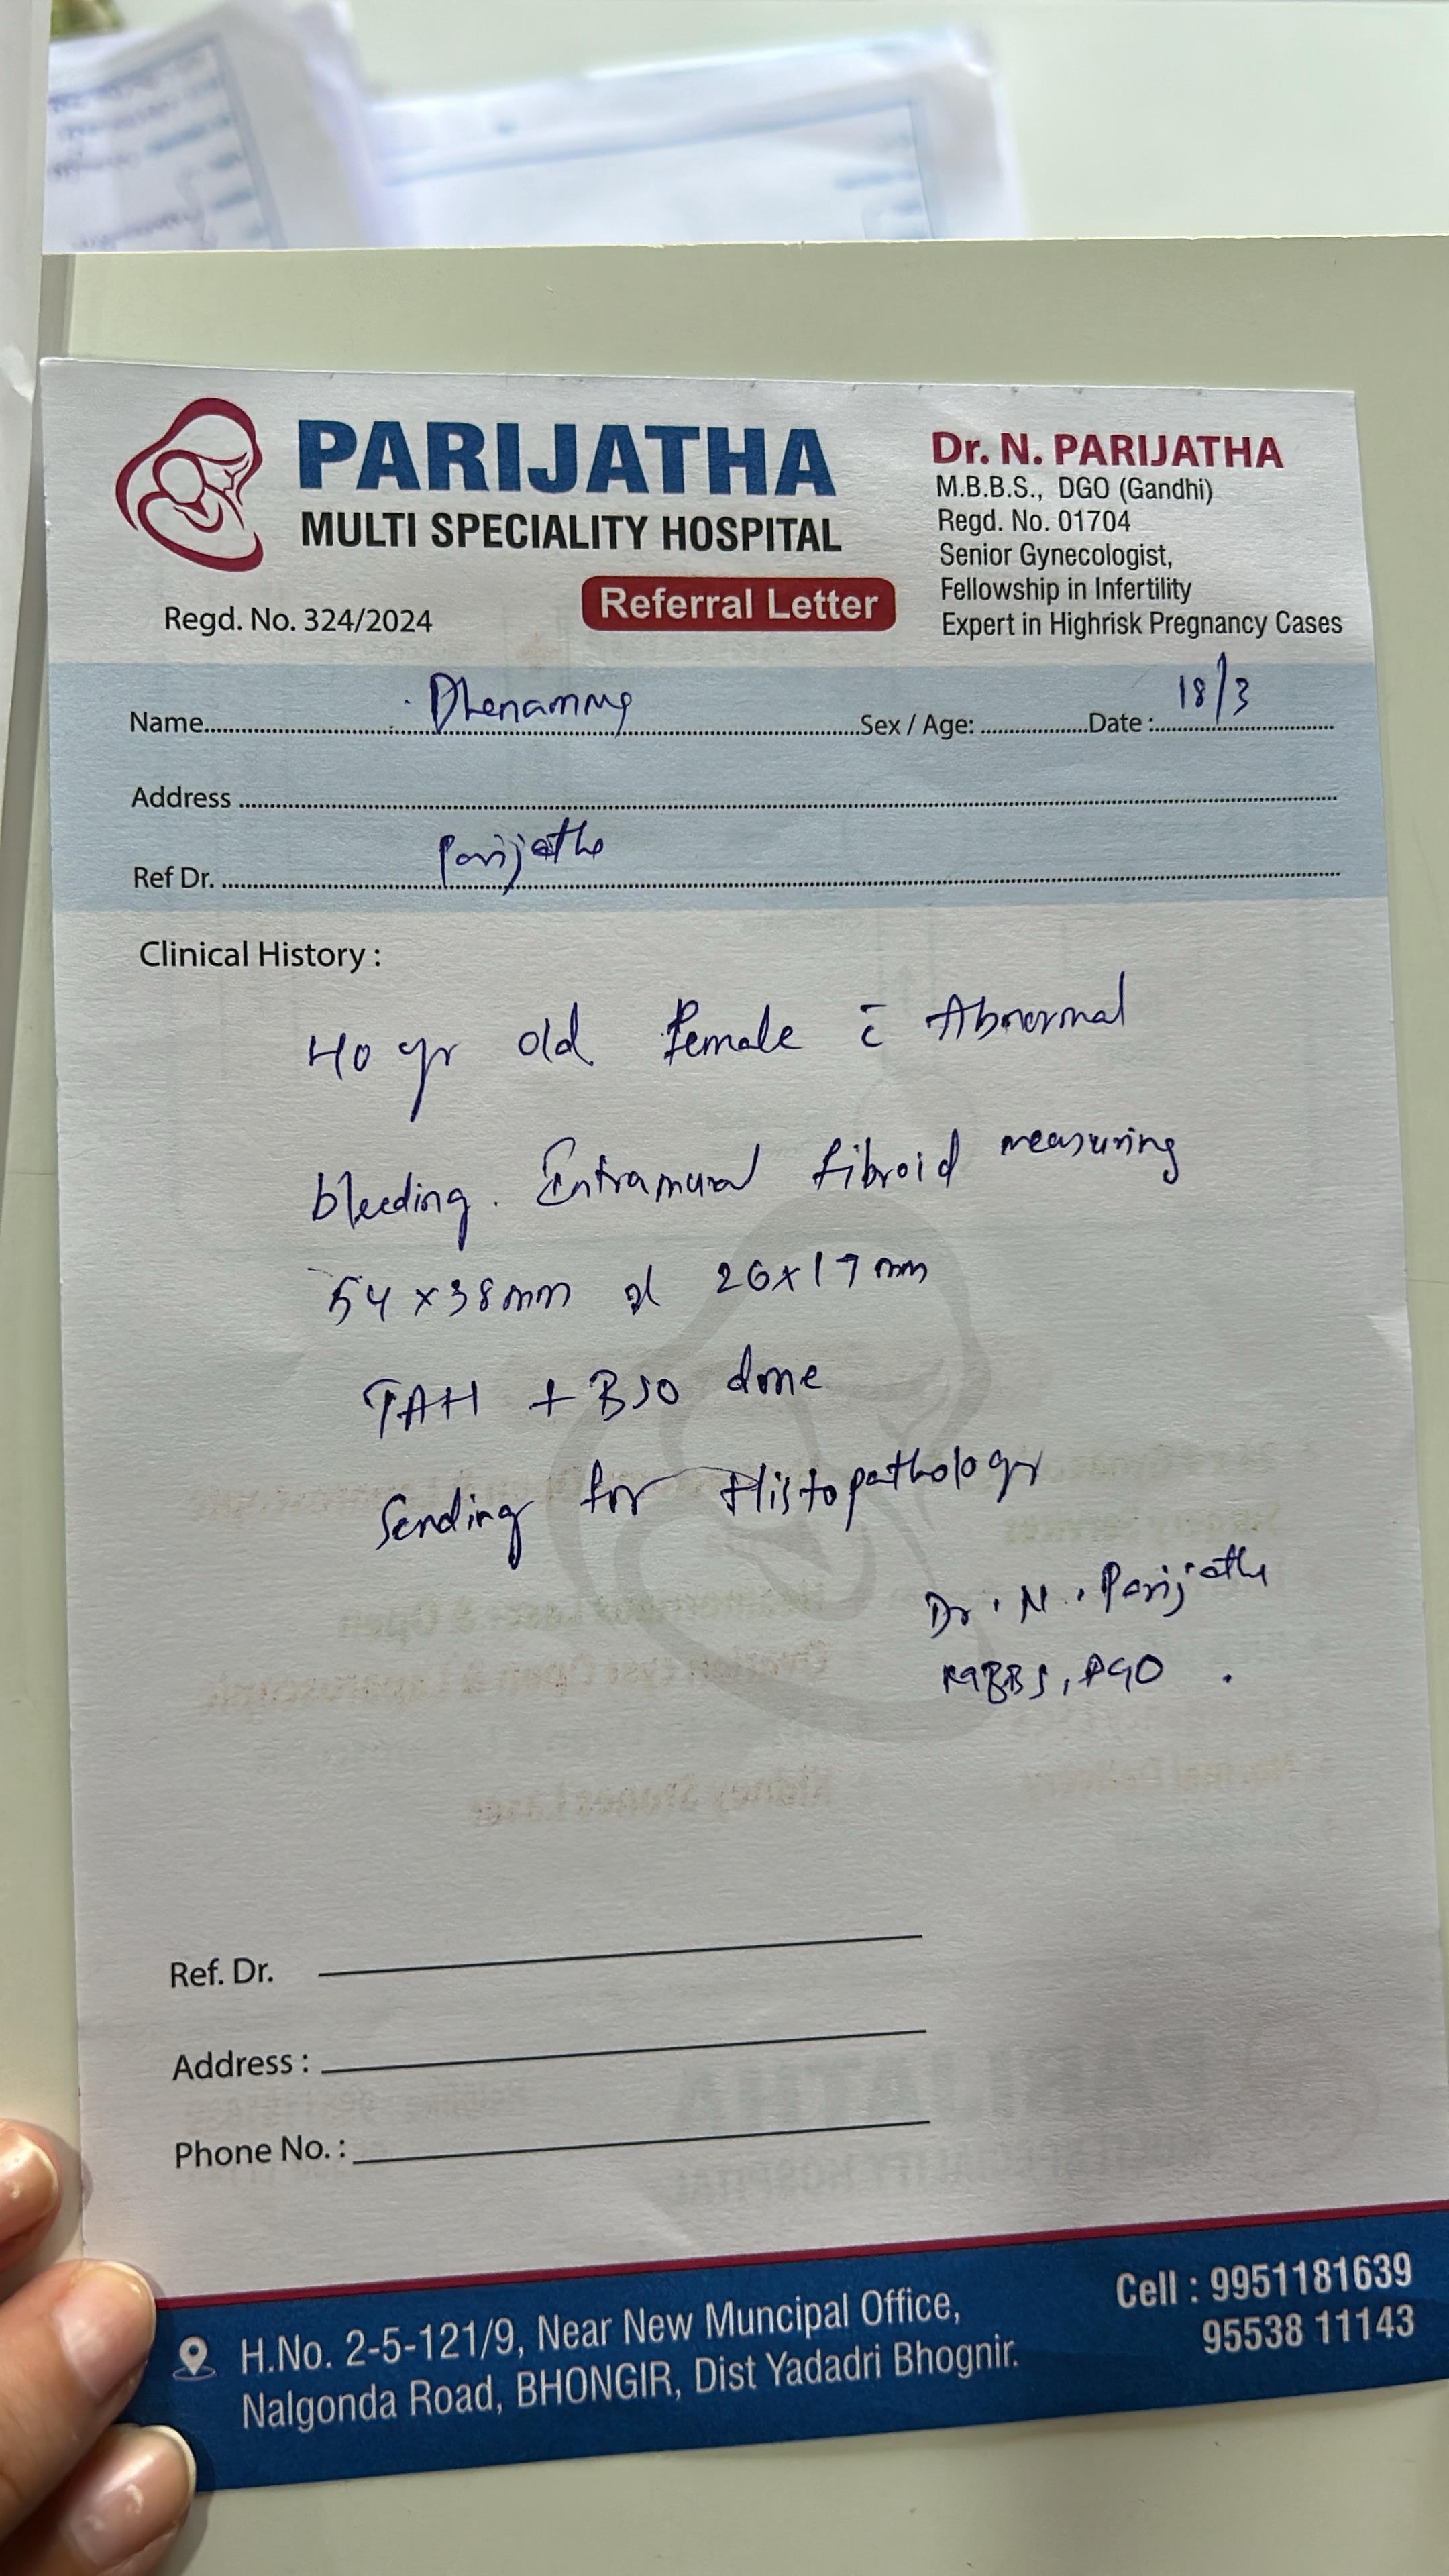 PARIJATHA
MULTI SPECIALITY HOSPITAL
Regd. No. 324/2024
Referral Letter
Dr. N. PARIJATHA
M.B.B.S., DGO (Gandhi)
Regd. No. 01704
Senior Gynecologist,
Fellowship in Infertility
Expert in Highrisk Pregnancy Cases
Name Dhenamma Sex / Age: Date : 18/3
Address
Ref Dr. Parijatha
Clinical History :
40 yr old Female c̄ Abnormal
bleeding. Intramural fibroid measuring
54 x 38 mm & 26 x 17 mm
TAH + BSO done
Sending for Histopathology
Dr. N. Parijatha
MBBS, DGO.
Ref. Dr.
Address :
Phone No. :
H.No. 2-5-121/9, Near New Muncipal Office,
Nalgonda Road, BHONGIR, Dist Yadadri Bhognir.
Cell : 9951181639
95538 11143